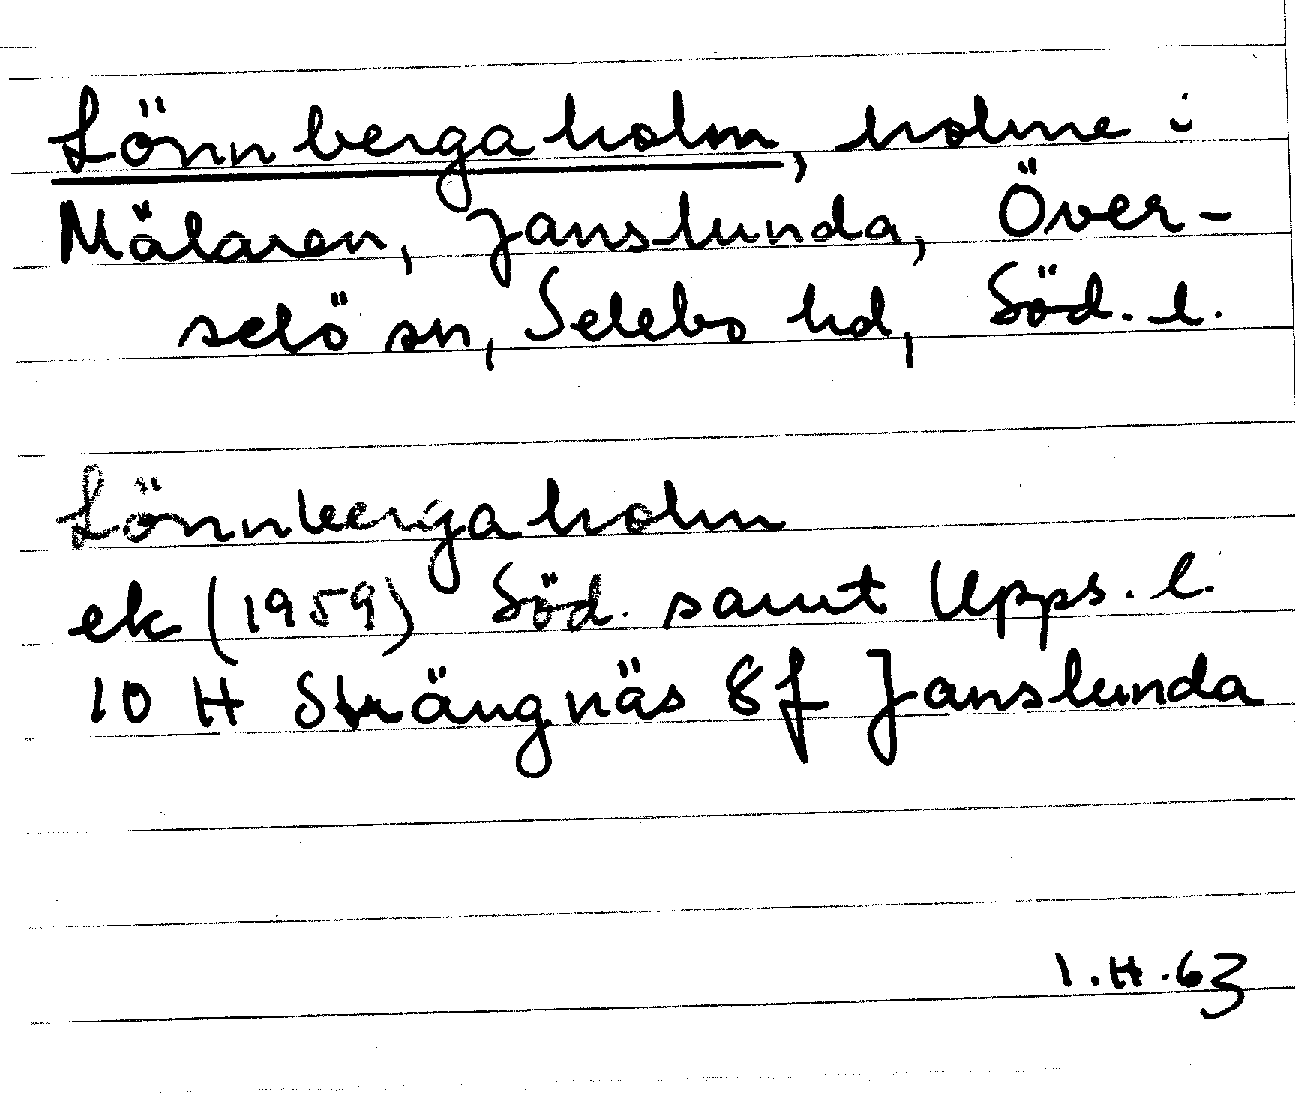 Lönnbergaholm, holme i
Mälaren, Janslunda, Över-
selö sn, Selebo hd, Söd. l.
Lönnbergaholm
ek (1959) Söd. samt Upps. l.
10 H Strängnäs 8f Janslunda
I.H.63